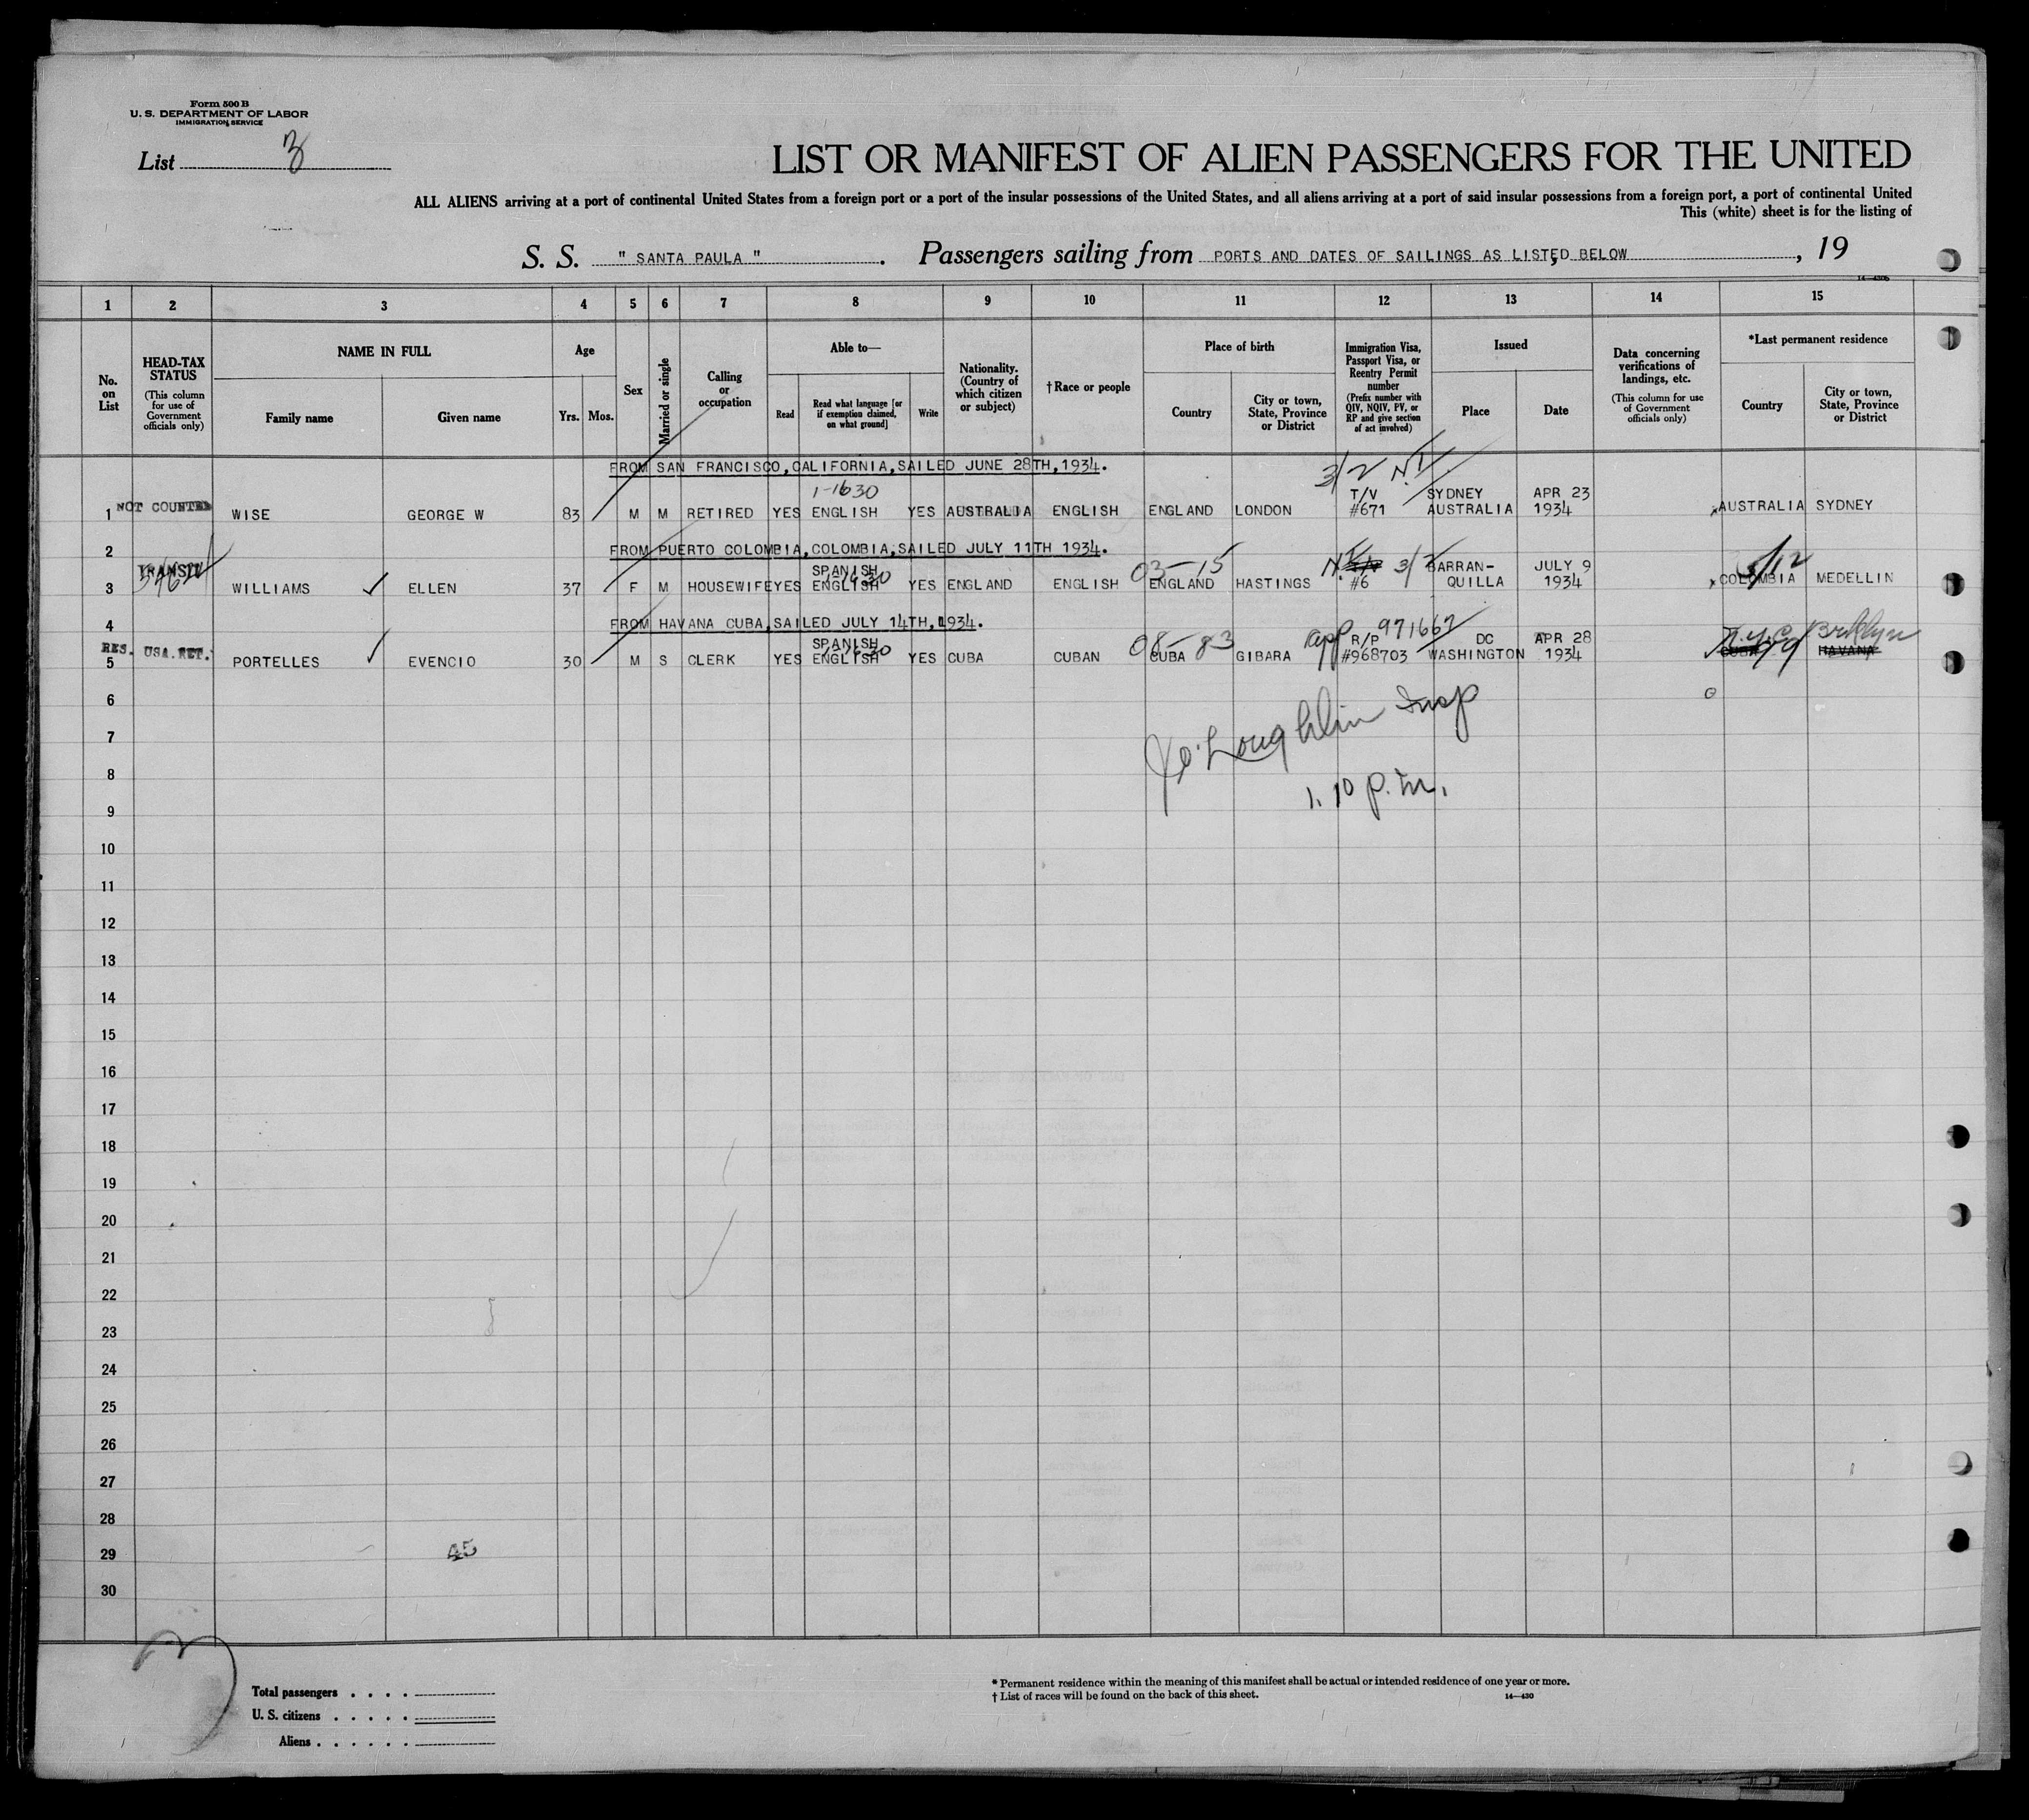 Form 500 B
U. S. DEPARTMENT OF LABOR
IMMIGRATION SERVICE
List 3
LIST OR MANIFEST OF ALIEN PASSENGERS FOR THE UNITED
ALL ALIENS arriving at a port of continental United States from a foreign port or a port of the insular possessions of the United States, and all aliens arriving at a port of said insular possessions from a foreign port, a port of continental United
This (white) sheet is for the listing of
S. S. " SANTA PAULA " . Passengers sailing from PORTS AND DATES OF SAILINGS AS LISTED BELOW , 19
1 2 3 4 5 6 7 8 9 10 11 12 13 14 15
No. on List
HEAD-TAX STATUS (This column for use of Government officials only)
NAME IN FULL
Family name Given name
Age
Yrs. Mos.
Sex
Married or single
Calling or occupation
Able to—
Read
Read what language [or if exemption claimed, on what ground]
Write
Nationality. (Country of which citizen or subject)
† Race or people
Place of birth
Country
City or town, State, Province or District
Immigration Visa, Passport Visa, or Reentry Permit number (Prefix number with QIV, NQIV, PV, or RP and give section of act involved)
Issued
Place Date
Data concerning verifications of landings, etc. (This column for use of Government officials only)
*Last permanent residence
Country
City or town, State, Province or District
FROM SAN FRANCISCO, CALIFORNIA, SAILED JUNE 28TH, 1934.
3/2 N.T
1-1630 T/V SYDNEY APR 23
1 NOT COUNTED WISE GEORGE W 83 M M RETIRED YES ENGLISH YES AUSTRALIA ENGLISH ENGLAND LONDON #671 AUSTRALIA 1934 AUSTRALIA SYDNEY
2 FROM PUERTO COLOMBIA, COLOMBIA, SAILED JULY 11TH 1934.
TRANSIT SPANISH 03-15 3/2 BARRAN- JULY 9
3 WILLIAMS ELLEN 37 F M HOUSEWIFE YES ENGLISH YES ENGLAND ENGLISH ENGLAND HASTINGS #6 QUILLA 1934 COLOMBIA MEDELLIN
4 FROM HAVANA CUBA, SAILED JULY 14TH, 1934.
RES. USA. RET. SPANISH 08-83 app 971667 R/P DC APR 28 N.Y.C Brooklyn
5 PORTELLES EVENCIO 30 M S CLERK YES ENGLISH YES CUBA CUBAN CUBA GIBARA #968703 WASHINGTON 1934 CUBA HAVANA
6
7 O'Loughlin Insp
8
1.10 p.m.
9
10
11
12
13
14
15
16
17
18
19
20
21
22
23
24
25
26
27
28
29 45
30
3
Total passengers . . . .
U. S. citizens . . . . .
Aliens . . . . . .
* Permanent residence within the meaning of this manifest shall be actual or intended residence of one year or more.
† List of races will be found on the back of this sheet. 14—430